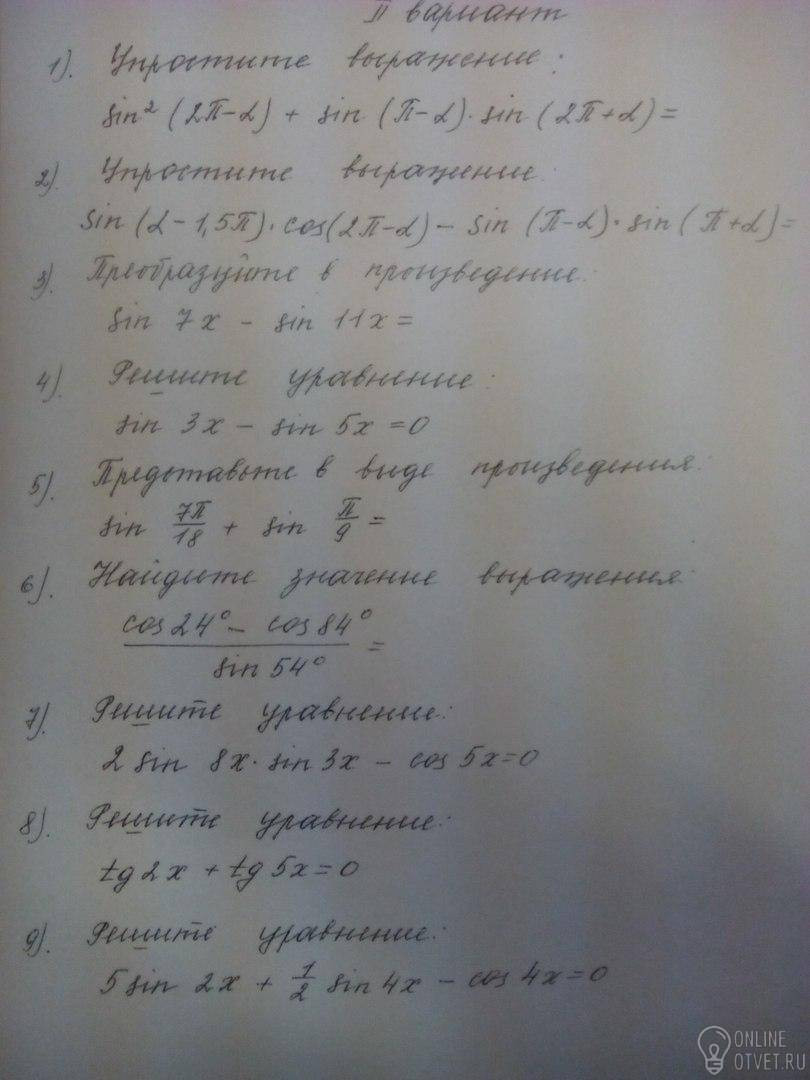 II вариант
1). Упростите выражение:
sin² (2π-α) + sin (π-α)·sin (2π+α)=
2). Упростите выражение.
sin (α-1,5π)·cos(2π-α)- sin (π-α)·sin (π+α)=
3). Преобразуйте в произведение:
sin 7x - sin 11x=
4). Решите уравнение:
sin 3x - sin 5x =0
5). Представьте в виде произведения:
sin 7π/18 + sin π/9 =
6). Найдите значение выражения:
cos 24° - cos 84°
sin 54° =
7). Решите уравнение:
2 sin 8x·sin 3x - cos 5x=0
8). Решите уравнение:
tg 2x + tg 5x=0
9). Решите уравнение:
5 sin 2x + 1/2 sin 4x - cos 4x=0
ONLINE
OTVET.RU